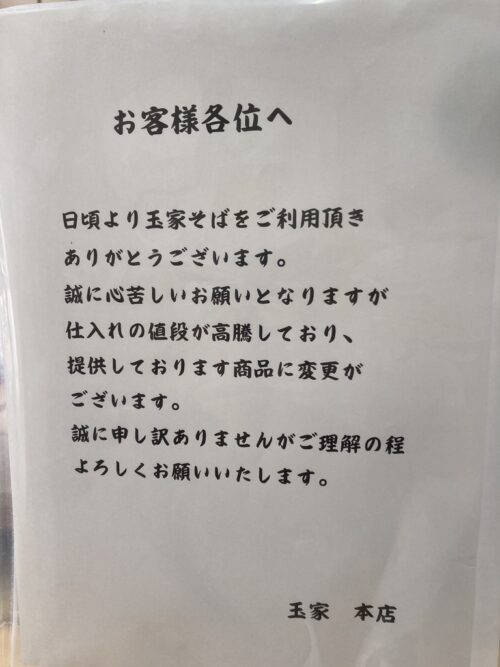 お客様各位へ
日頃より玉家そばをご利用頂き
ありがとうございます。
誠に心苦しいお願いとなりますが
仕入れの値段が高騰しており、
提供しております商品に変更が
ございます。
誠に申し訳ありませんがご理解の程
よろしくお願いいたします。
玉家　本店